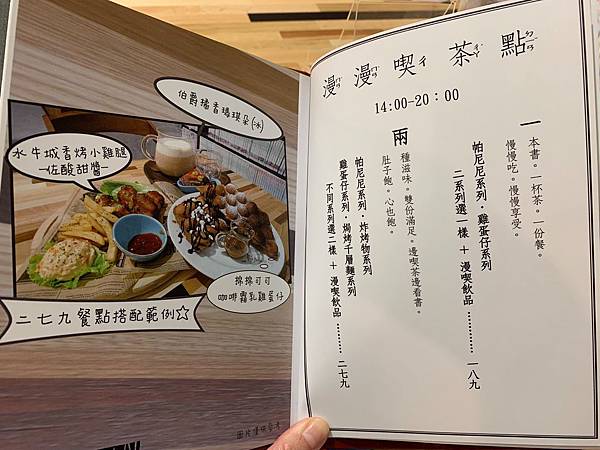 漫漫喫茶點
ㄇㄢˋ ㄇㄢˋ ㄔ ㄔㄚˊ ㄉㄧㄢˇ
14:00-20：00
一
本書。一杯茶。一份餐。
慢慢吃。慢慢享受。
帕尼尼系列．雞蛋仔系列
二系列選一樣 ＋ 漫喫飲品 ……… 一八九
兩
種滋味。雙份滿足。邊喫茶邊看書。
肚子飽。心也飽。
帕尼尼系列．炸烤物系列
雞蛋仔系列．焗烤千層麵系列
不同系列選二樣 ＋ 漫喫飲品 ……… 二七九
伯爵豬香瑪琪朵(冰)
水牛城香烤小雞腿
-佐酸甜醬-
棉棉可可
咖啡霜乳雞蛋仔
二七九餐點搭配範例☆
圖片僅供參考